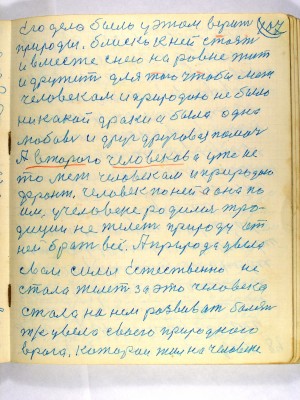 Его дело было у этом верит
природы. блиско к ней стоят
и вместе с нею на ровне жит
и дружит для того чтобы меж
человекам и природою не было
никакой драки а была одна
любовь и друг друговая помоч
А второго человекова уже не
то меж человекам и природою
человек по ней а она по
им, у человеке родилися тра
диции не жилет природу от
ней брат всё. А природа увела
сваи силы Естественно не
стала жилет за это человека
стала на нем развиват болят
же увела своего природного
врага, катораи жил на человеке